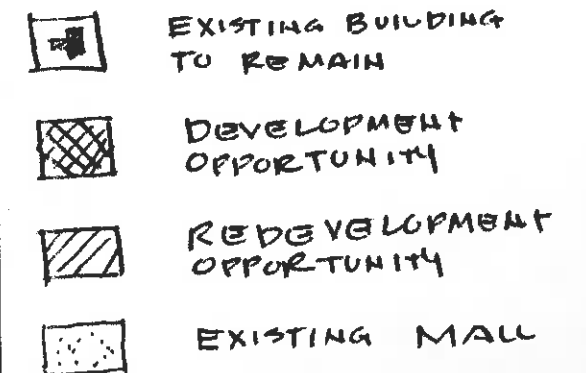 EXISTING BUILDING
TO REMAIN
DEVELOPMENT
OPPORTUNITY
REDEVELOPMENT
OPPORTUNITY
EXISTING MALL